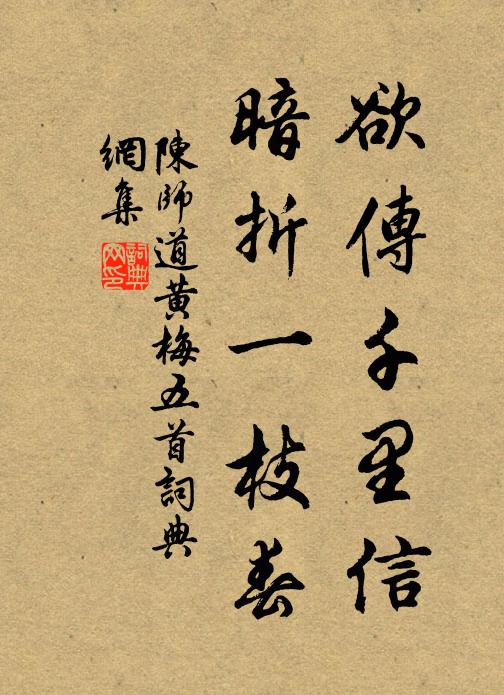 欲傳千里信
暗折一枝春
陳師道黄梅五首詞典
網集
詞典
网印